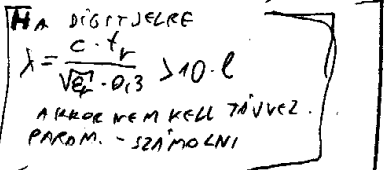 HA DIGIT JELRE
λ = c · t_r / √ε_r · 0,3 > 10 · l
AKKOR NEM KELL TÁVVEZ.
PARAM. - SZÁMOLNI